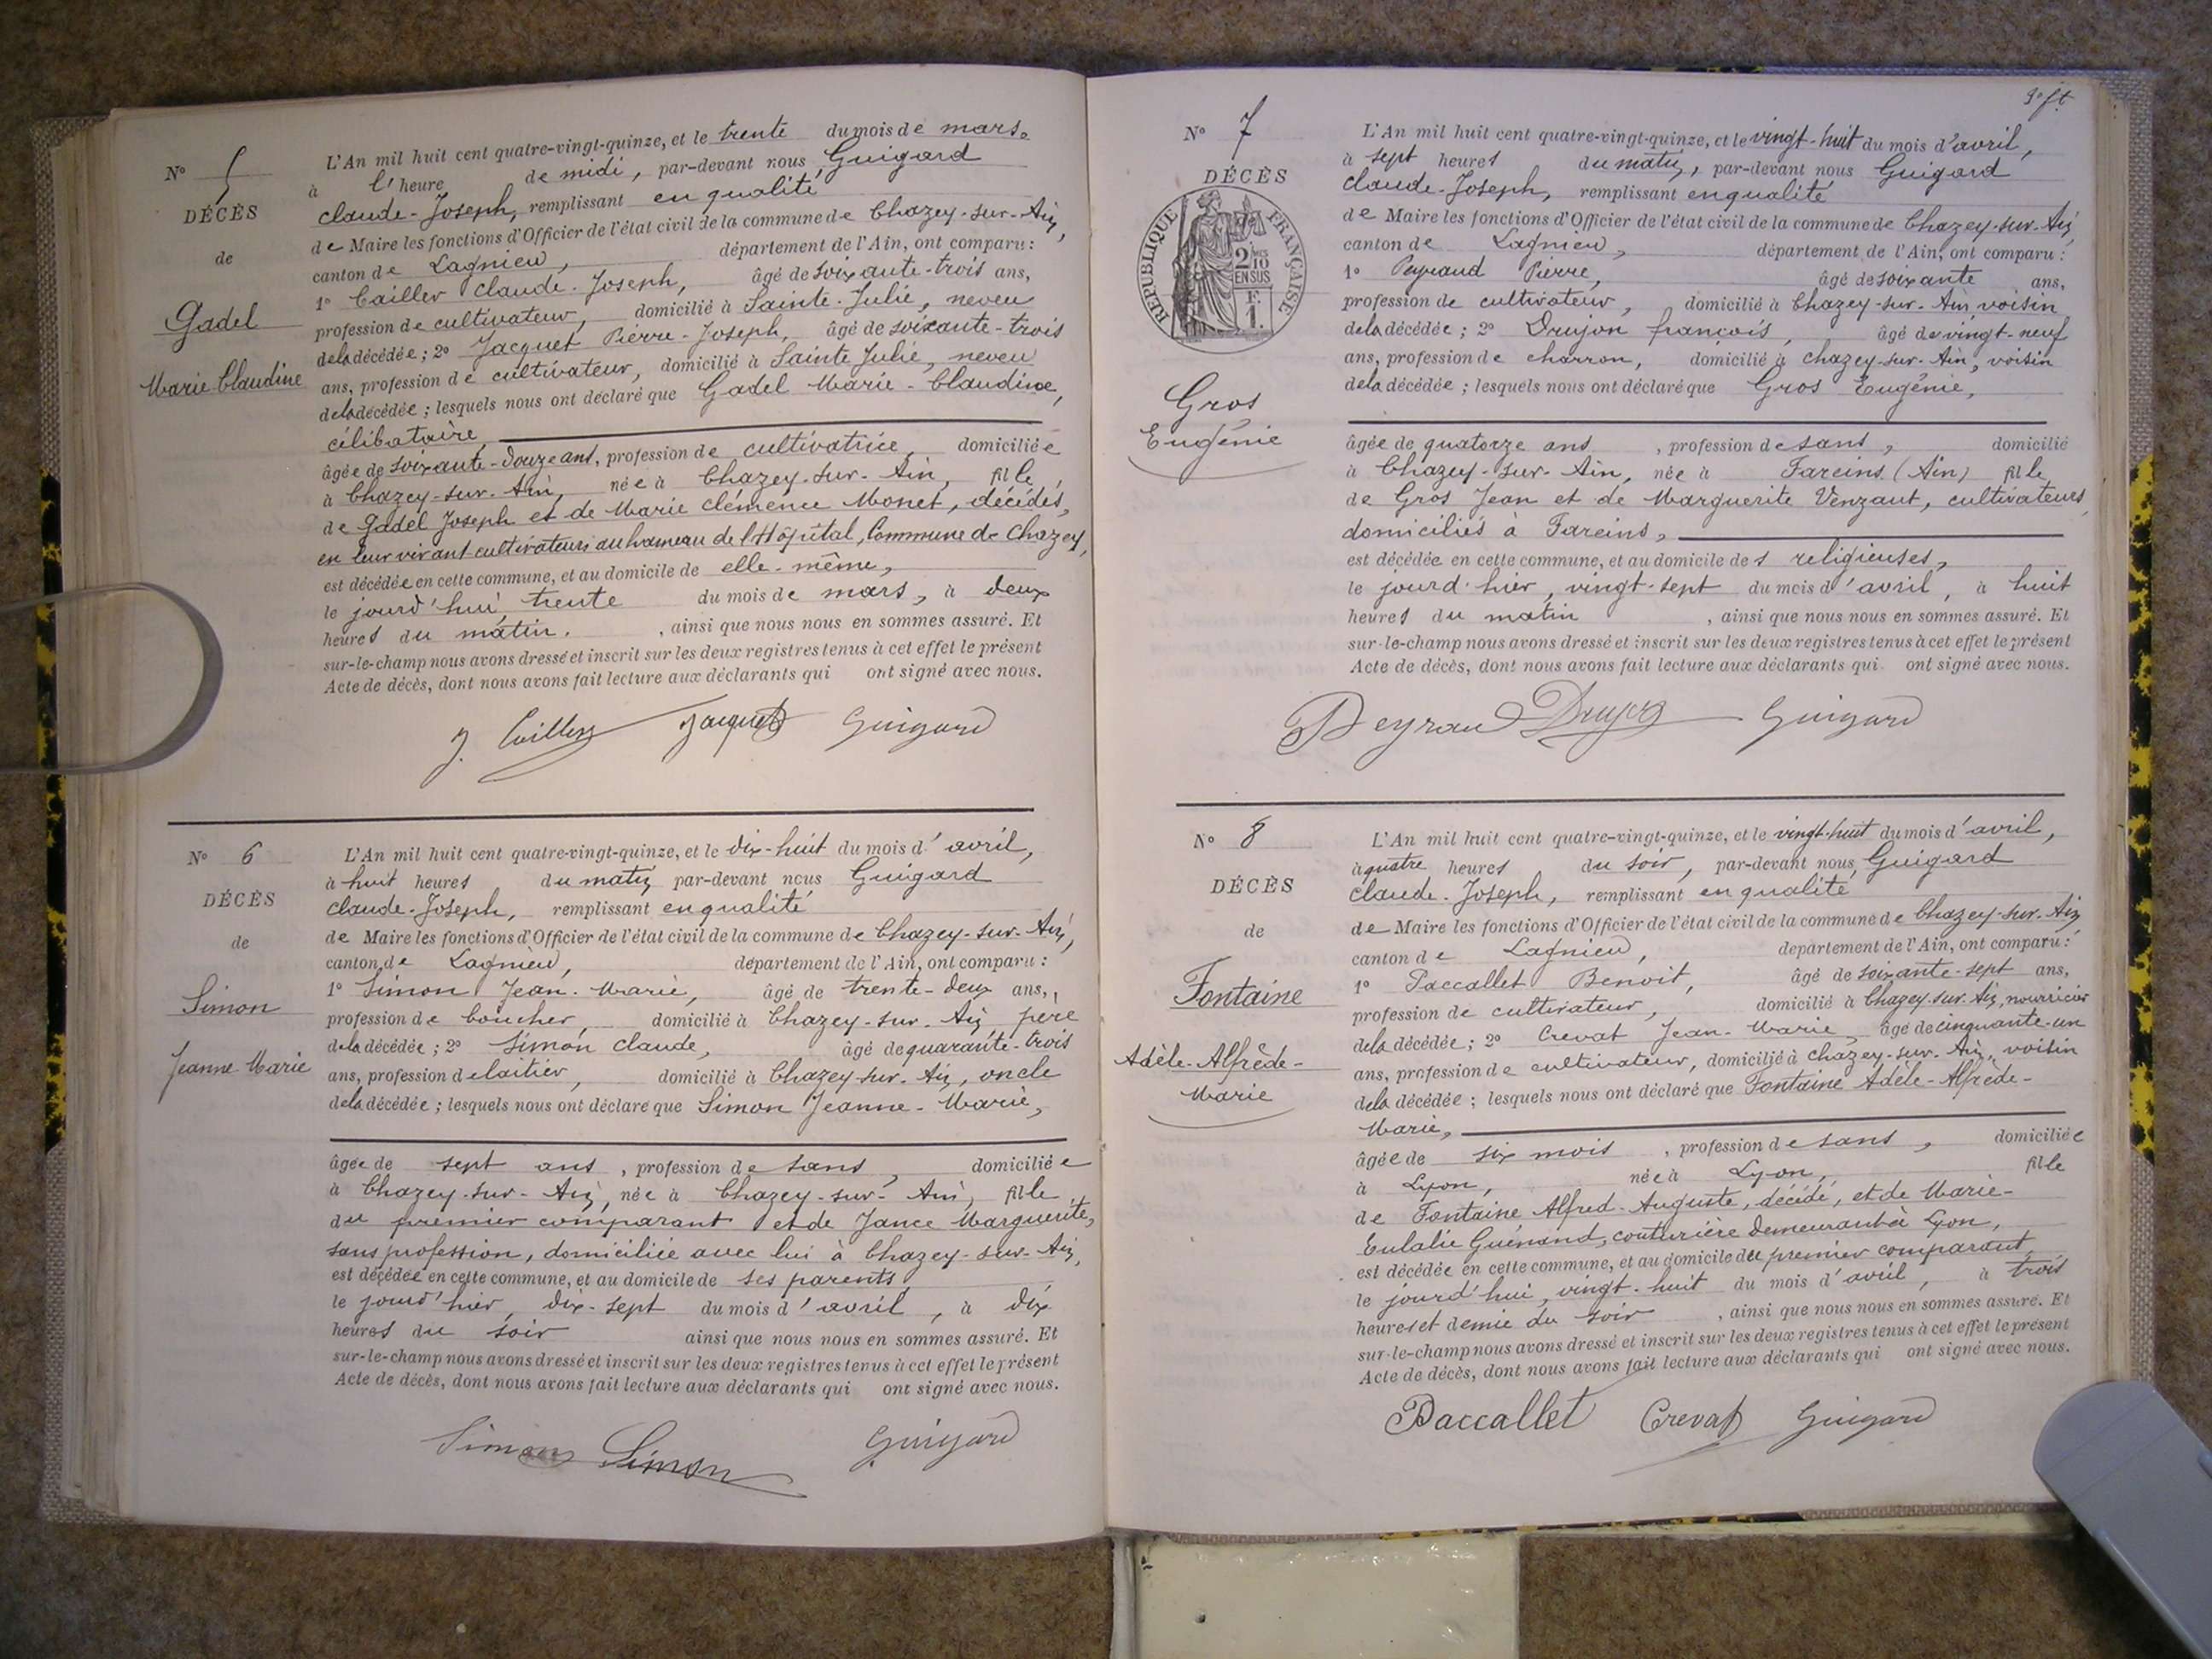 N° 5
DÉCÈS
de
Gadel
Marie Claudine
L'An mil huit cent quatre-vingt-quinze, et le trente du mois de mars,
à l'heure de midi, par-devant nous Guigard
Claude-Joseph, remplissant en qualité
de Maire les fonctions d'Officier de l'état civil de la commune de Chazey-sur-Ain,
canton de Lagnieu, département de l'Ain, ont comparu :
1° Cailler Claude-Joseph, âgé de soixante-trois ans,
profession de cultivateur, domicilié à Sainte-Julie, neveu
de la décédée ; 2° Jacquet Pierre-Joseph, âgé de soixante-trois
ans, profession de cultivateur, domicilié à Sainte Julie, neveu
de la décédée ; lesquels nous ont déclaré que Gadel Marie-Claudine,
célibataire,
âgée de soixante-douze ans, profession de cultivatrice, domiciliée
à Chazey-sur-Ain, née à Chazey-sur-Ain, fille
de Gadel Joseph et de Marie Clémence Monet, décédés,
en leur vivant cultivateurs au hameau de l'Hôpital, Commune de Chazey,
est décédée en cette commune, et au domicile de elle-même,
le jourd'hui trente du mois de mars, à deux
heures du matin. , ainsi que nous nous en sommes assuré. Et
sur-le-champ nous avons dressé et inscrit sur les deux registres tenus à cet effet le présent
Acte de décès, dont nous avons fait lecture aux déclarants qui ont signé avec nous.
J. Cailler Jacquet Guigard
N° 6
DÉCÈS
de
Simon
Jeanne Marie
L'An mil huit cent quatre-vingt-quinze, et le dix-huit du mois d'avril,
à huit heures du matin, par-devant nous Guigard
Claude-Joseph, remplissant en qualité
de Maire les fonctions d'Officier de l'état civil de la commune de Chazey-sur-Ain,
canton de Lagnieu, département de l'Ain, ont comparu :
1° Simon Jean-Marie, âgé de trente-deux ans,
profession de boucher, domicilié à Chazey-sur-Ain, père
de la décédée ; 2° Simon Claude, âgé de quarante-trois
ans, profession de laitier, domicilié à Chazey-sur-Ain, oncle
de la décédée ; lesquels nous ont déclaré que Simon Jeanne-Marie,
âgée de sept ans, profession de sans, domiciliée
à Chazey-sur-Ain, née à Chazey-sur-Ain, fille
du premier comparant et de Jance Marguerite,
sans profession, domiciliée avec lui à Chazey-sur-Ain,
est décédée en cette commune, et au domicile de ses parents,
le jourd'hier, dix-sept du mois d'avril, à dix
heures du soir ainsi que nous nous en sommes assuré. Et
sur-le-champ nous avons dressé et inscrit sur les deux registres tenus à cet effet le présent
Acte de décès, dont nous avons fait lecture aux déclarants qui ont signé avec nous.
Simon Simon Guigard
3e ft.
N° 7
DÉCÈS
RÉPUBLIQUE FRANÇAISE
2/10 EN SUS
F. 1.
Gros
Eugénie
L'An mil huit cent quatre-vingt-quinze, et le vingt-huit du mois d'avril,
à sept heures du matin, par-devant nous Guigard
Claude-Joseph, remplissant en qualité
de Maire les fonctions d'Officier de l'état civil de la commune de Chazey-sur-Ain,
canton de Lagnieu, département de l'Ain, ont comparu :
1° Peyraud Pierre, âgé de soixante ans,
profession de cultivateur, domicilié à Chazey-sur-Ain, voisin
de la décédée ; 2° Drujon françois, âgé de vingt-neuf
ans, profession de charron, domicilié à Chazey-sur-Ain, voisin
de la décédée ; lesquels nous ont déclaré que Gros Eugénie,
âgée de quatorze ans, profession de sans, domicilié
à Chazey-sur-Ain, née à Fareins (Ain) fille
de Gros Jean et de Marguerite Venzant, cultivateurs,
domiciliés à Fareins,
est décédée en cette commune, et au domicile des religieuses,
le jourd'hier, vingt-sept du mois d'avril, à huit
heures du matin, ainsi que nous nous en sommes assuré. Et
sur-le-champ nous avons dressé et inscrit sur les deux registres tenus à cet effet le présent
Acte de décès, dont nous avons fait lecture aux déclarants qui ont signé avec nous.
Peyraud Drujon Guigard
N° 8
DÉCÈS
de
Fontaine
Adèle-Alfrède-
Marie
L'An mil huit cent quatre-vingt-quinze, et le vingt-huit du mois d'avril,
à quatre heures du soir, par-devant nous Guigard
Claude-Joseph, remplissant en qualité
de Maire les fonctions d'Officier de l'état civil de la commune de Chazey-sur-Ain,
canton de Lagnieu, département de l'Ain, ont comparu :
1° Paccallet Benoit, âgé de soixante-sept ans,
profession de cultivateur, domicilié à Chazey-sur-Ain, nourricier
de la décédée ; 2° Crevat Jean-Marie, âgé de cinquante-un
ans, profession de cultivateur, domicilié à Chazey-sur-Ain, voisin
de la décédée ; lesquels nous ont déclaré que Fontaine Adèle-Alfrède-
Marie,
âgée de six mois, profession de sans, domiciliée
à Lyon, née à Lyon, fille
de Fontaine Alfred-Auguste, décédé, et de Marie-
Eulalie Guénand, couturière demeurant à Lyon,
est décédée en cette commune, et au domicile du premier comparant,
le jourd'hui, vingt-huit du mois d'avril, à trois
heures et demie du soir, ainsi que nous nous en sommes assuré. Et
sur-le-champ nous avons dressé et inscrit sur les deux registres tenus à cet effet le présent
Acte de décès, dont nous avons fait lecture aux déclarants qui ont signé avec nous.
Paccallet Crevat Guigard